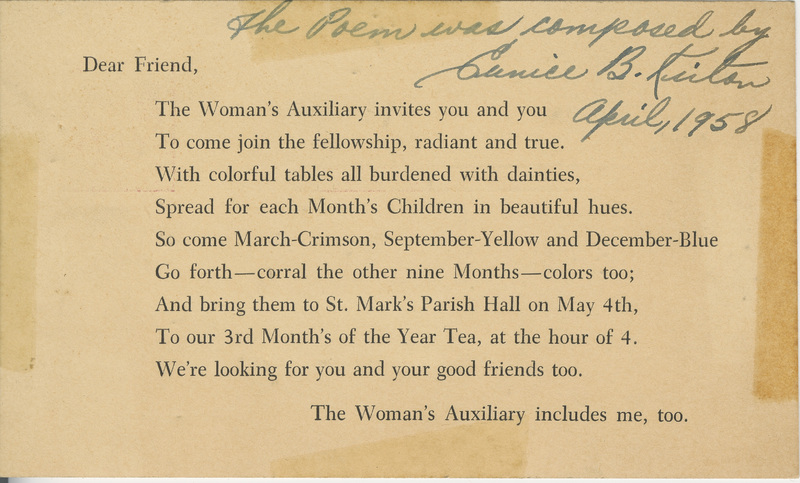 The Poem was composed by
Eunice B.
April, 1958
Dear Friend,
The Woman's Auxiliary invites you and you
To come join the fellowship, radiant and true.
With colorful tables all burdened with dainties,
Spread for each Month's Children in beautiful hues.
So come March-Crimson, September-Yellow and December-Blue
Go forth—corral the other nine Months—colors too;
And bring them to St. Mark's Parish Hall on May 4th,
To our 3rd Month's of the Year Tea, at the hour of 4.
We're looking for you and your good friends too.
The Woman's Auxiliary includes me, too.